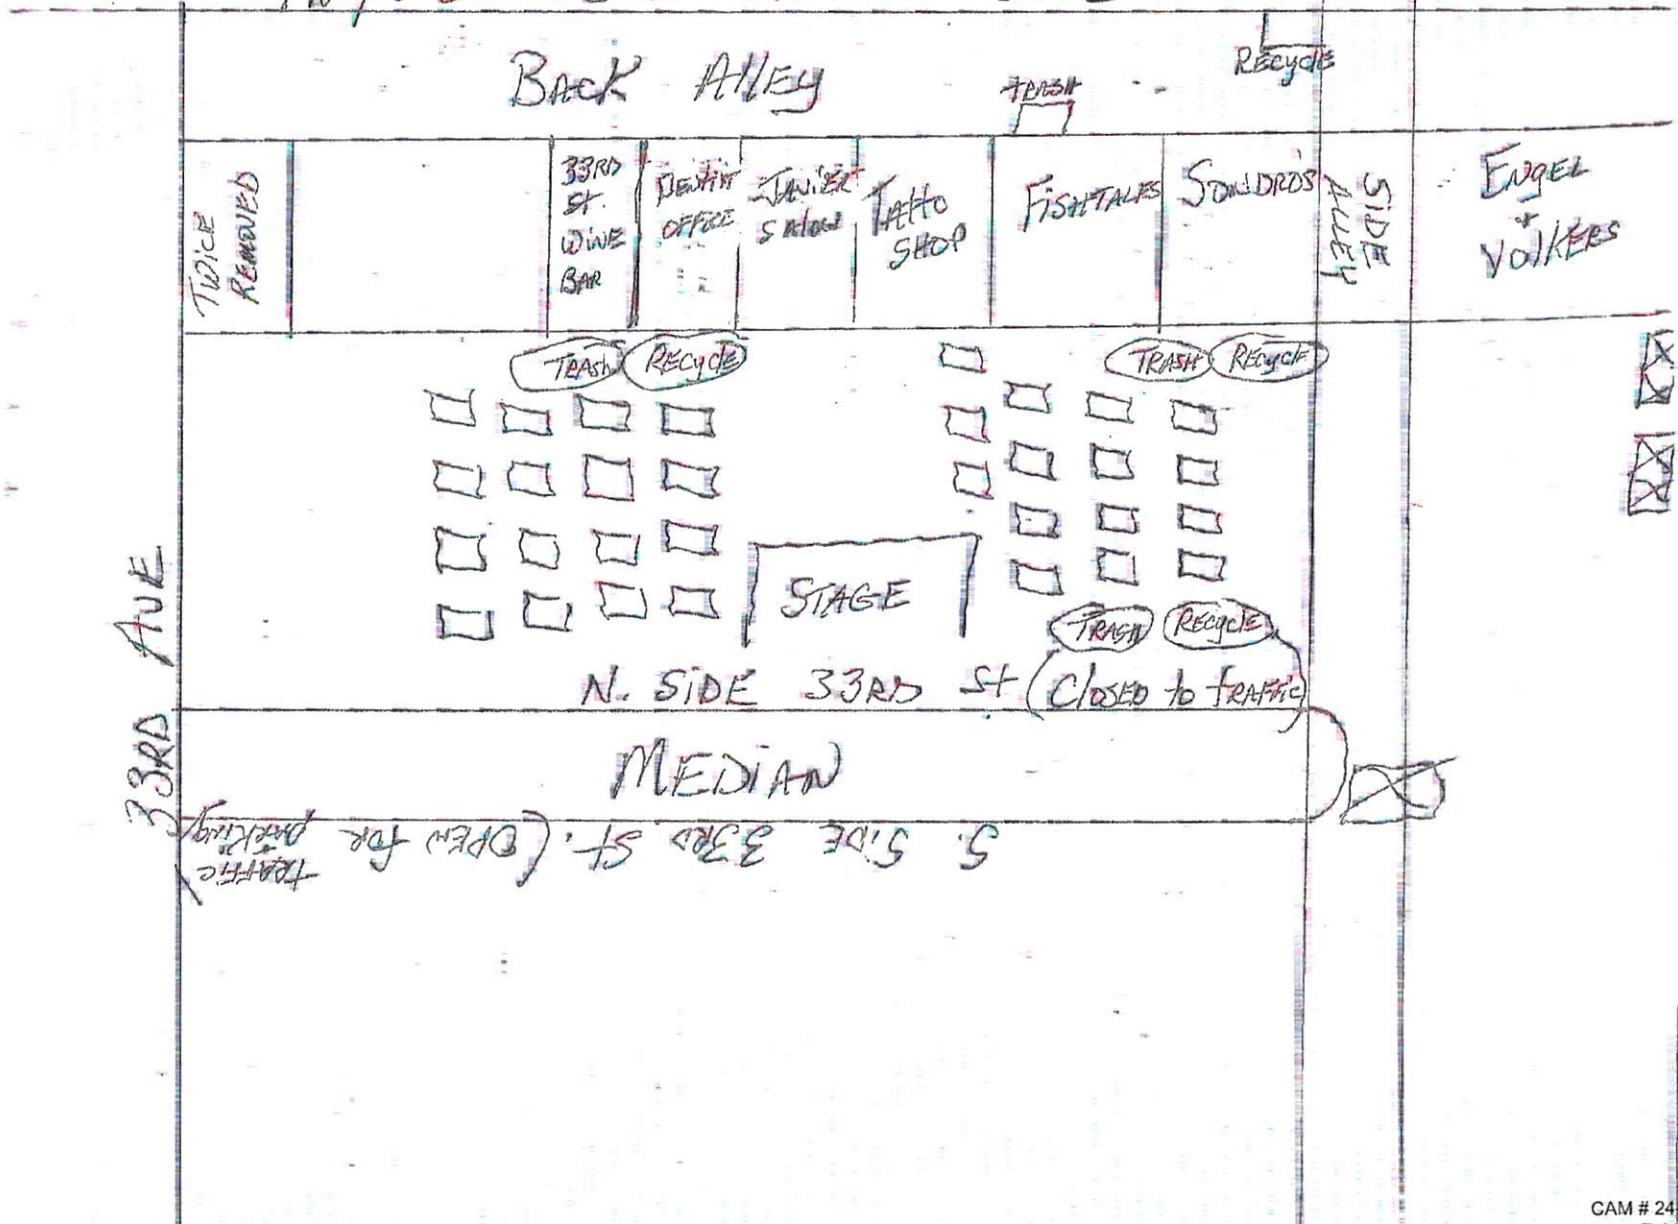 Recycle
BACK Alley
TRASH
TWICE
REMOVED
33RD
St.
WiNE
BAR
DENTIST
OFFICE
JAVIER
SALON
TATTO
SHOP
FISHTALES
SONDRO'S
SIDE
ALLEY
ENGEL
+
VOLKERS
TRASH RECycle
TRASH RECycle
STAGE
TRASH RECycle
N. SiDE 33RD St (Closed to tRAFFic)
33RD AVE
MEDiAN
S. SiDE 33RD ST. (OPEN FOR
TRAFFIC
+
PARKING)
CAM # 24